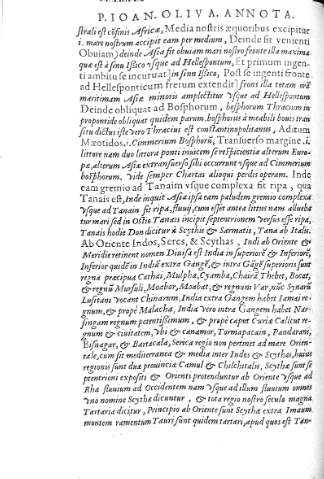 P. IOAN. OLIVA. ANNOTA.
strali est cōfinis Africæ, Media nostris æquoribus excipitur
i. mari nostrum accipit eam per medium, Deinde sit venienti
Obuiam) deinde Asia fit obuiam mari nostro fronte illa maxima
quæ est à sinu Issico vsque ad Hellespontum, Et primum ingen-
ti ambitu se incuruat) in sinu Issico, Post se ingenti fronte
ad Hellesponticum fretum extendit) frons illa totam
maritimam Asiæ minoris amplectitur vsque ad Hellespontum
Deinde obliquat ad Bosphorum, bosphorum Thracium in
propontide obliquat quidem parum. bosphoros à meabili bouis tran
situ dictus iste vero Thracius est constantinopolitanus, Aditum
Mæotidos, i. Cimmerium Bosphorū, Transuerso margine. i.
littore nam duo littora ponti inuicem se respicientia alterum Euro-
pæ, alterum Asiæ extransuerso sibi occurrunt vsque ad Cimmerium
bosphorum, vide semper Chartas alioqui perdis operam. Inde
eam gremio ad Tanaim vsque complexa fit ripa, quæ
Tanais est, Inde inquit Asia ipsa eam paludem gremio complexa
vsque ad Tanaim fit ripa, fluuij, cum esset antea littus nam allabe
tur mari sed in Ostio Tanais incipit septentrionem versus esse ripa,
Tanais hodie Don dicitur à Scythis & Sarmatis, Tana ab Italis.
Ab Oriente Indos, Seres, & Scythas, Indi ab Oriente &
Meridie retinent nomen Diuisa est India in superiorē & Inferiorē,
Inferior quidē in Indiā extra Gangē, & intra Gāgē superioris sunt
regna præcipua Cathai, Mulpha, Cyamba, Chairā Thebet, Bocat,
& regnū Mursuli, Moabar, Moabat, & regnum Var, nūc Synarū
Lusitani vocant Chinarum, India extra Gangem habet Iamai re-
gnum, & propè Malacha, India vero intra Gangem habet Nar-
singam regnum potentissimum, & propè caput Curia Calicut re-
gnum & ciuitatem, vbi & cananor, Turmapatam, Pandarani,
Bisnagar, & Bartacala, Serica regio non pertinet ad mare Orien-
tale, cum sit mediterranea & media inter Indos & Scythas, huius
regionis sunt duæ prouincia Camul & Chalchitalis, Scythæ sunt se
ptentrioni expositi & Orienti protenduntur ab Oriente vsque ad
Rha fluuium ad Occidentem nam vsque ad illum fluuium omnes
vno nomine Scythæ dicuntur, & tota regio nostro seculo magna
Tartaria dicitur, Principio ab Oriente sunt Scythæ extra Imaum
montem ramentum Tauri sunt quidam tartari, apud quos est Tan-